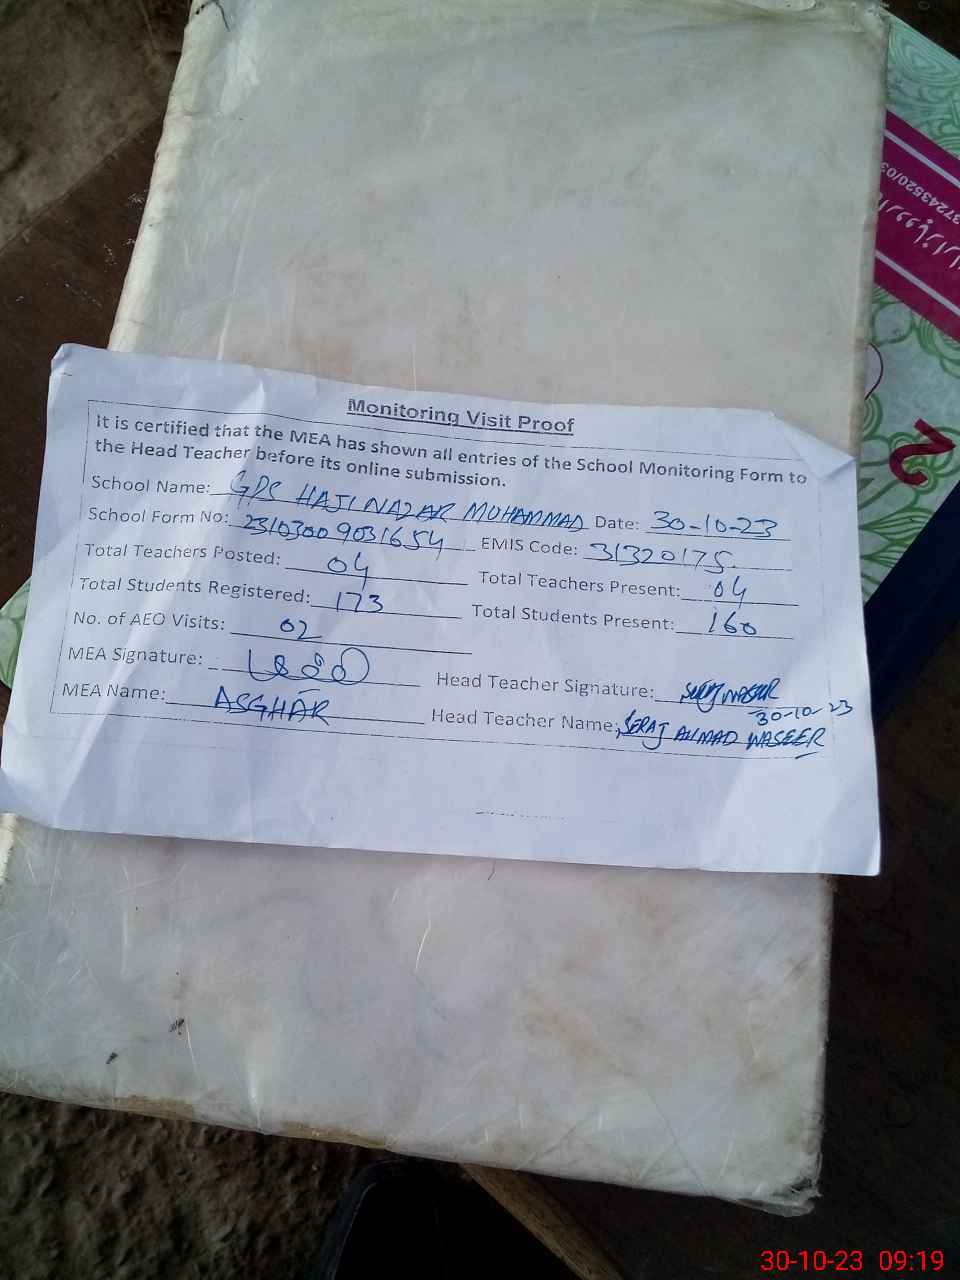 Monitoring Visit Proof
It is certified that the MEA has shown all entries of the School Monitoring Form to
the Head Teacher before its online submission.
School Name: GPS HAJI NAZAR MUHAMMAD Date: 30-10-23
School Form No: 23103009031654 EMIS Code: 31320175
Total Teachers Posted: 04 Total Teachers Present: 04
Total Students Registered: 173 Total Students Present: 160
No. of AEO Visits: 02
MEA Signature: Head Teacher Signature: Seraj Waseer
30-10-23
MEA Name: ASGHAR Head Teacher Name: SERAJ AHMAD WASEER
37243520/03
2
30-10-23 09:19